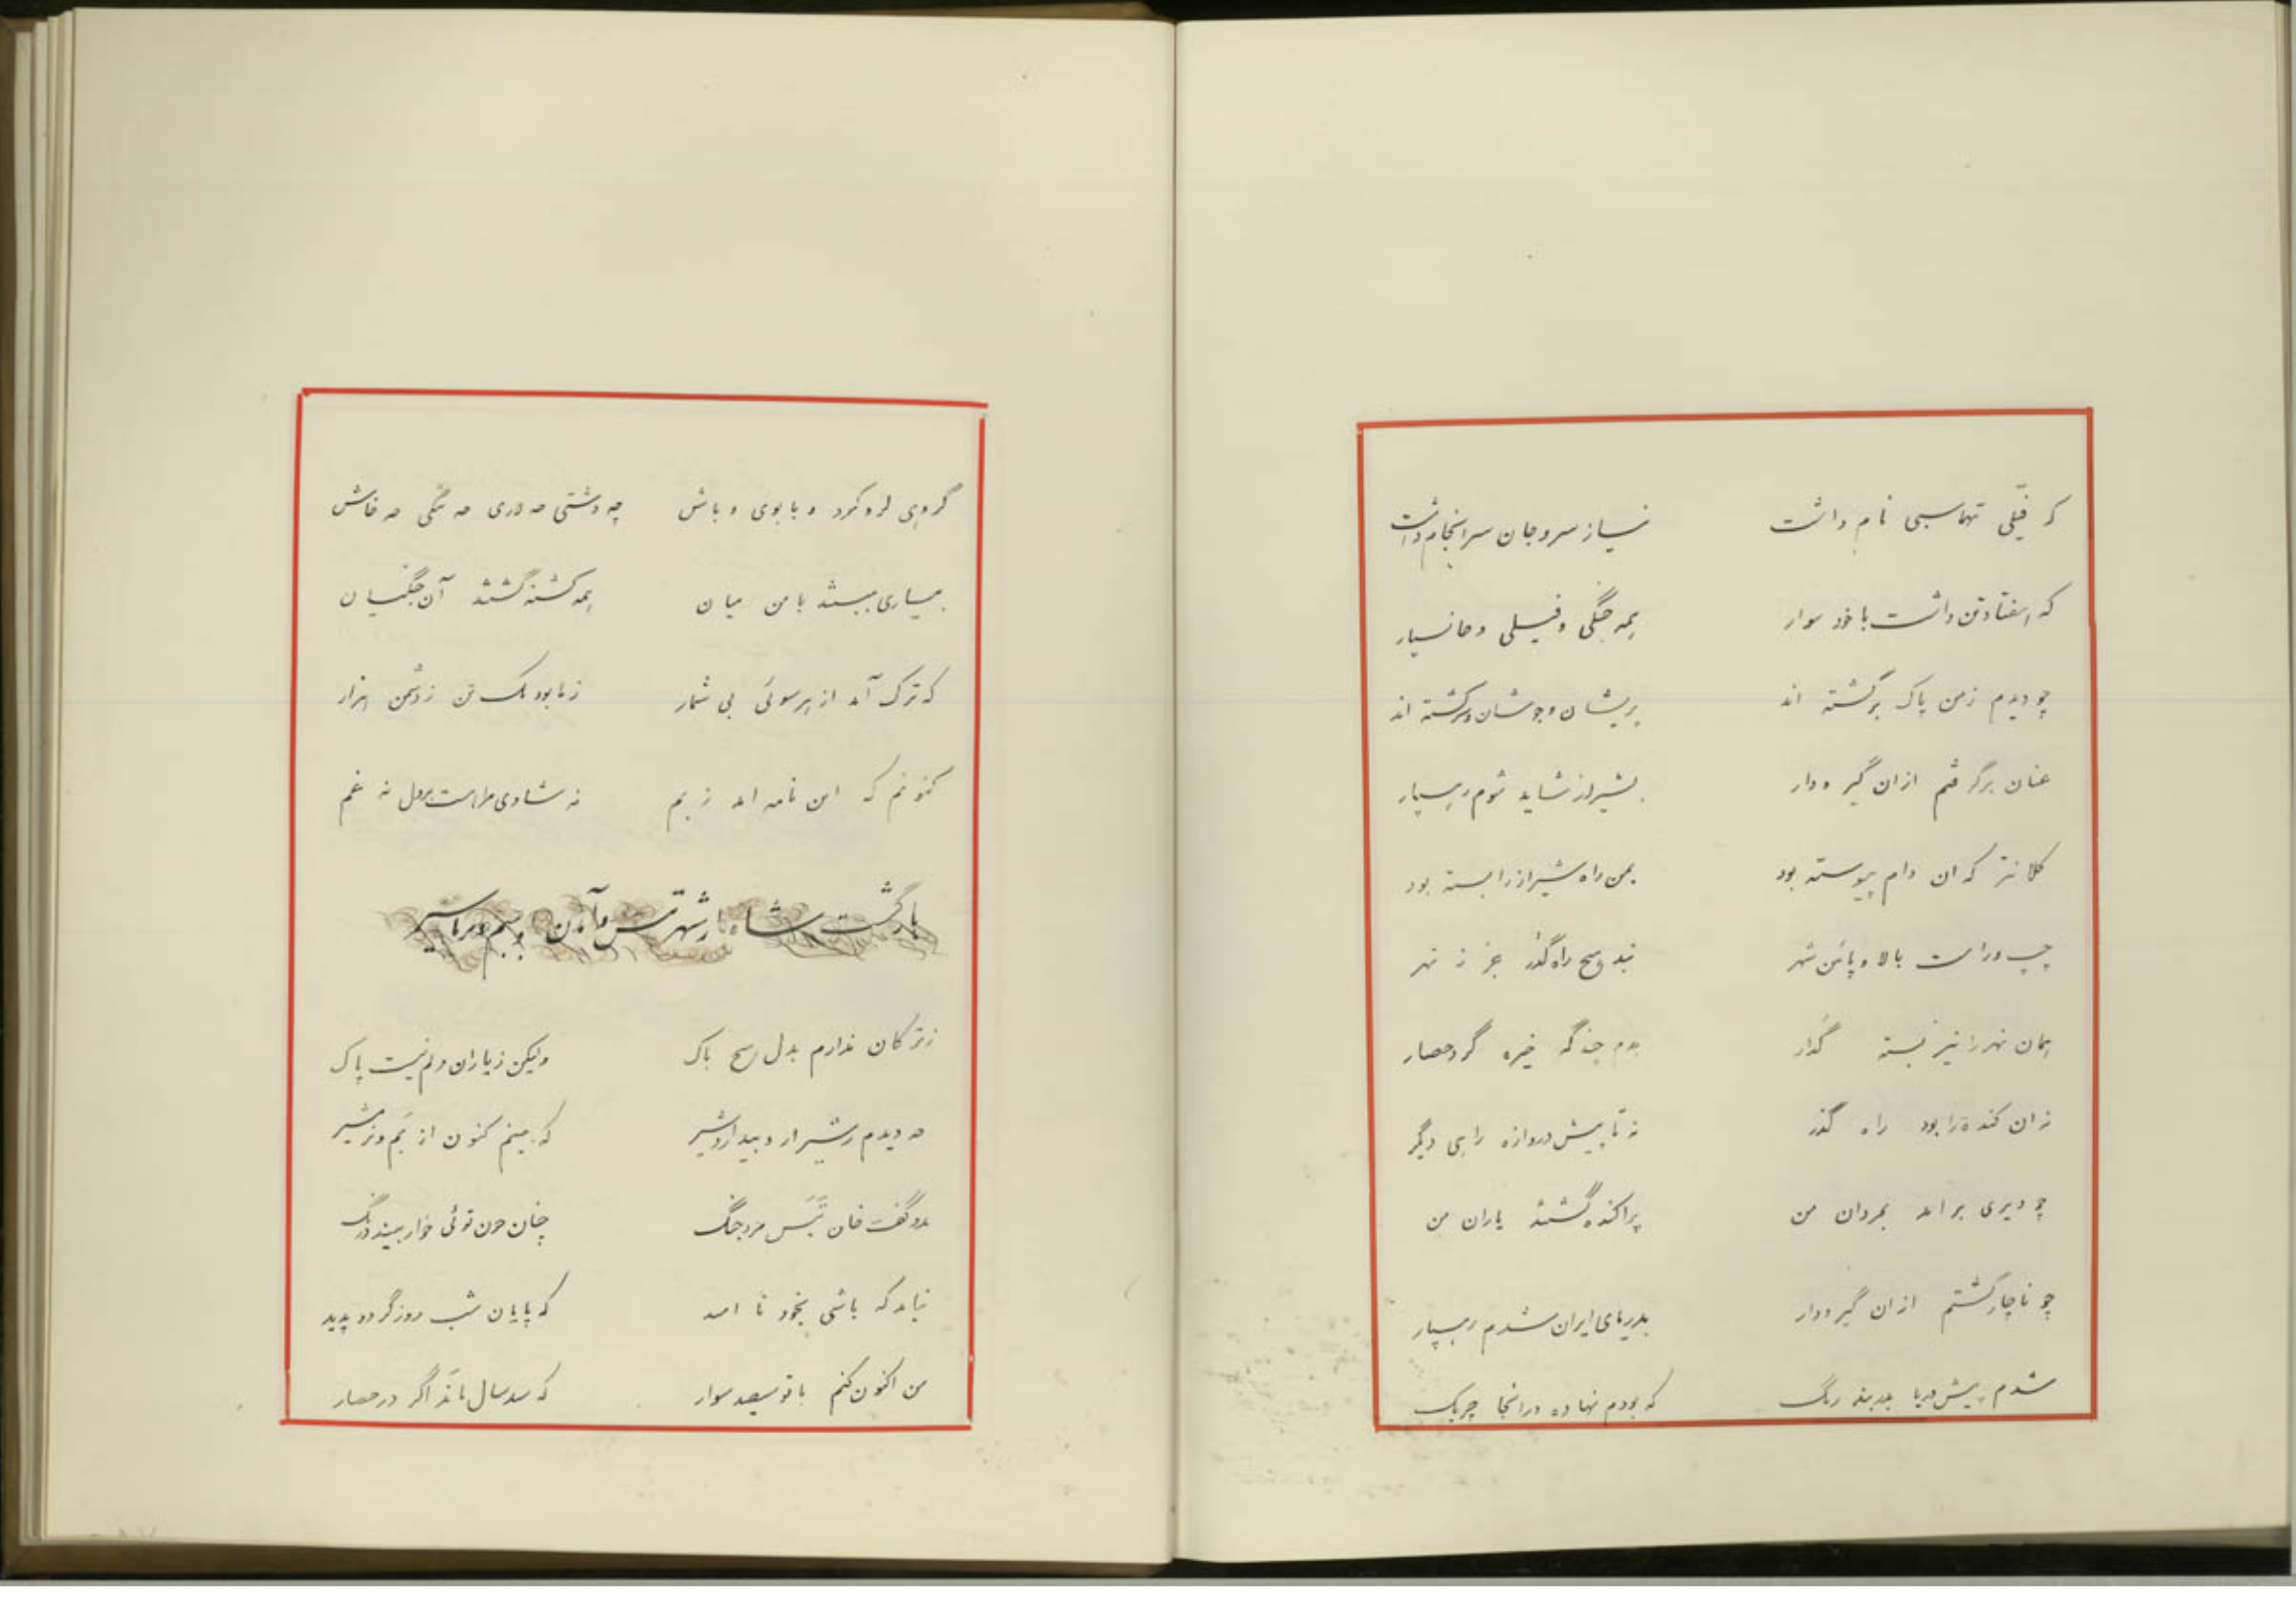 که فیلی تهماسبی نام داشت نیاز سر و جان سرانجام داشت
که هفتاد تن داشت با خود سوار همه جنگی و فیلی و جانسپار
چو دیدم ز من پاک برگشته اند پریشان و جوشان و سرگشته اند
عنان برگرفتم ازان گیر و دار بشیراز شاید شوم رهسپار
کلانتر که ان دام پیوسته بود بمن راه شیراز را بسته بود
چپ و راست بالا و پائین شهر نبد هیچ راه گذر جز ز نهر
همان نهر را نیز بسته گذار بدم چند گه خیره گرد حصار
نه ان کنده را بود راه گذر نه تا پیش دروازه راهی دگر
چو دیری بر امد بمردان من پراکنده گشتند یاران من
چو ناچار گشتم ازان گیر و دار بدریای ایران شدم رهسپار
شدم پیش دریا به بند ریگ که بودم نهاده در انجا چریک
گروهی لر و کرد و بابوی و باش چه دشتی چه لاری چه تنگی چه فاش
بیاری ببستند با من میان همه کشته گشتند آن جنگیان
که ترک آمد از هر سوئی بی شمار ز ما بود یک تن ز دشمن هزار
کنونم که این نامه امد ز بم نه شادی مراست بر دل نه غم
بازگشت شاه از شهر و آمدن به بم و نرماشیر
ز ترکان ندارم بدل هیچ باک ولیکن ز یاران دلم نیست پاک
چه دیدم ز شیراز و بیداردشیر که بینم کنون از بم و نرمشیر
بدو گفت خان مرد جنگ چنان چون توئی خوار بیند درنگ
نباید که باشی بخود نا امید که پایان شب روز گردد پدید
من اکنون کنم با تو سیصد سوار که سد سال ماند اگر در حصار